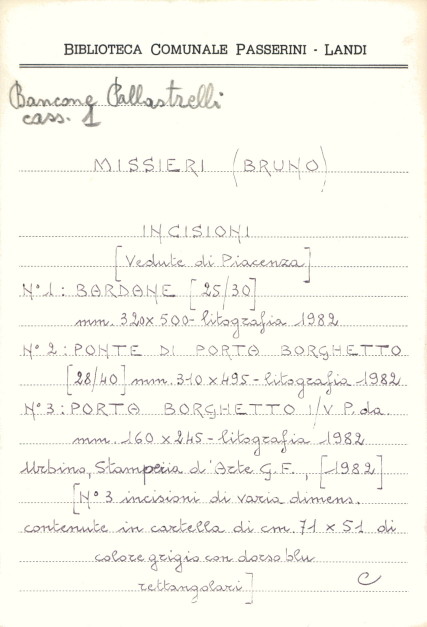 BIBLIOTECA COMUNALE PASSERINI - LANDI
Bancone Pallastrelli
cass. 1
MISSIERI (BRUNO)
INCISIONI
[Vedute di Piacenza]
N° 1: BARDANE [25/30]
mm. 320 x 500 - litografia 1982
N° 2: PONTE DI PORTA BORGHETTO
[28/40] mm. 310 x 495 - litografia 1982
N° 3: PORTA BORGHETTO I/V P. da
mm. 160 x 245 - litografia 1982
Urbino, Stamperia d'Arte G.F., [1982]
[N° 3 incisioni di varia dimens.
contenute in cartella di cm. 71 x 51 di
colore grigio con dorso blu
rettangolari] C